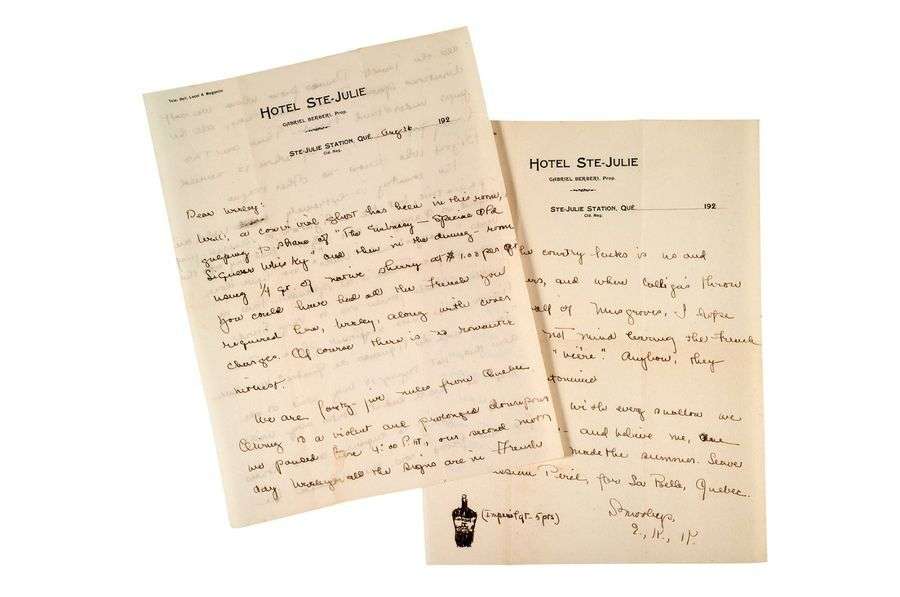 Tele. Bell, Local & Magantic
HOTEL STE-JULIE
GABRIEL BERBERI, Prop.
STE-JULIE STATION, QUE Aug 16 192
Cld. Reg.
Dear Worley:
Well, a convivial ghost has been in this room,
guzzling D share of "The Embassy — Special Old
Liqueur Whisky" and then in the dining-room
using 1/4 qt of native sherry at $1.00 per qt
You could have had all the French you
required here, Worley, along with cover
charges. Of course there is no romantic
interest.
We are forty-five miles from Quebec
Owing to a violent and prolonged downpour
we paused here 4:00 P.M., our second
day. Worley all the signs are in French
HOTEL STE-JULIE
GABRIEL BERBERI, Prop.
STE-JULIE STATION, QUE 192
Cld. Reg.
the country lacks is us and
and where throw
of Musgroves. I hope
not mind leaving the French
Anyhow, they
with every swallow we
and believe me,
made the summer. Leave
Peril, for La Belle, Quebec.
(Imperial qt - 5 pts)